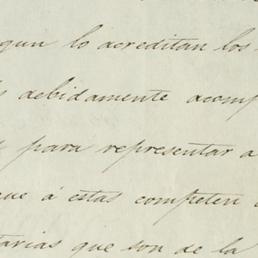 egun lo acreditan los
debidamente acomp
para representar a
que á estas competen
tarias que son de la